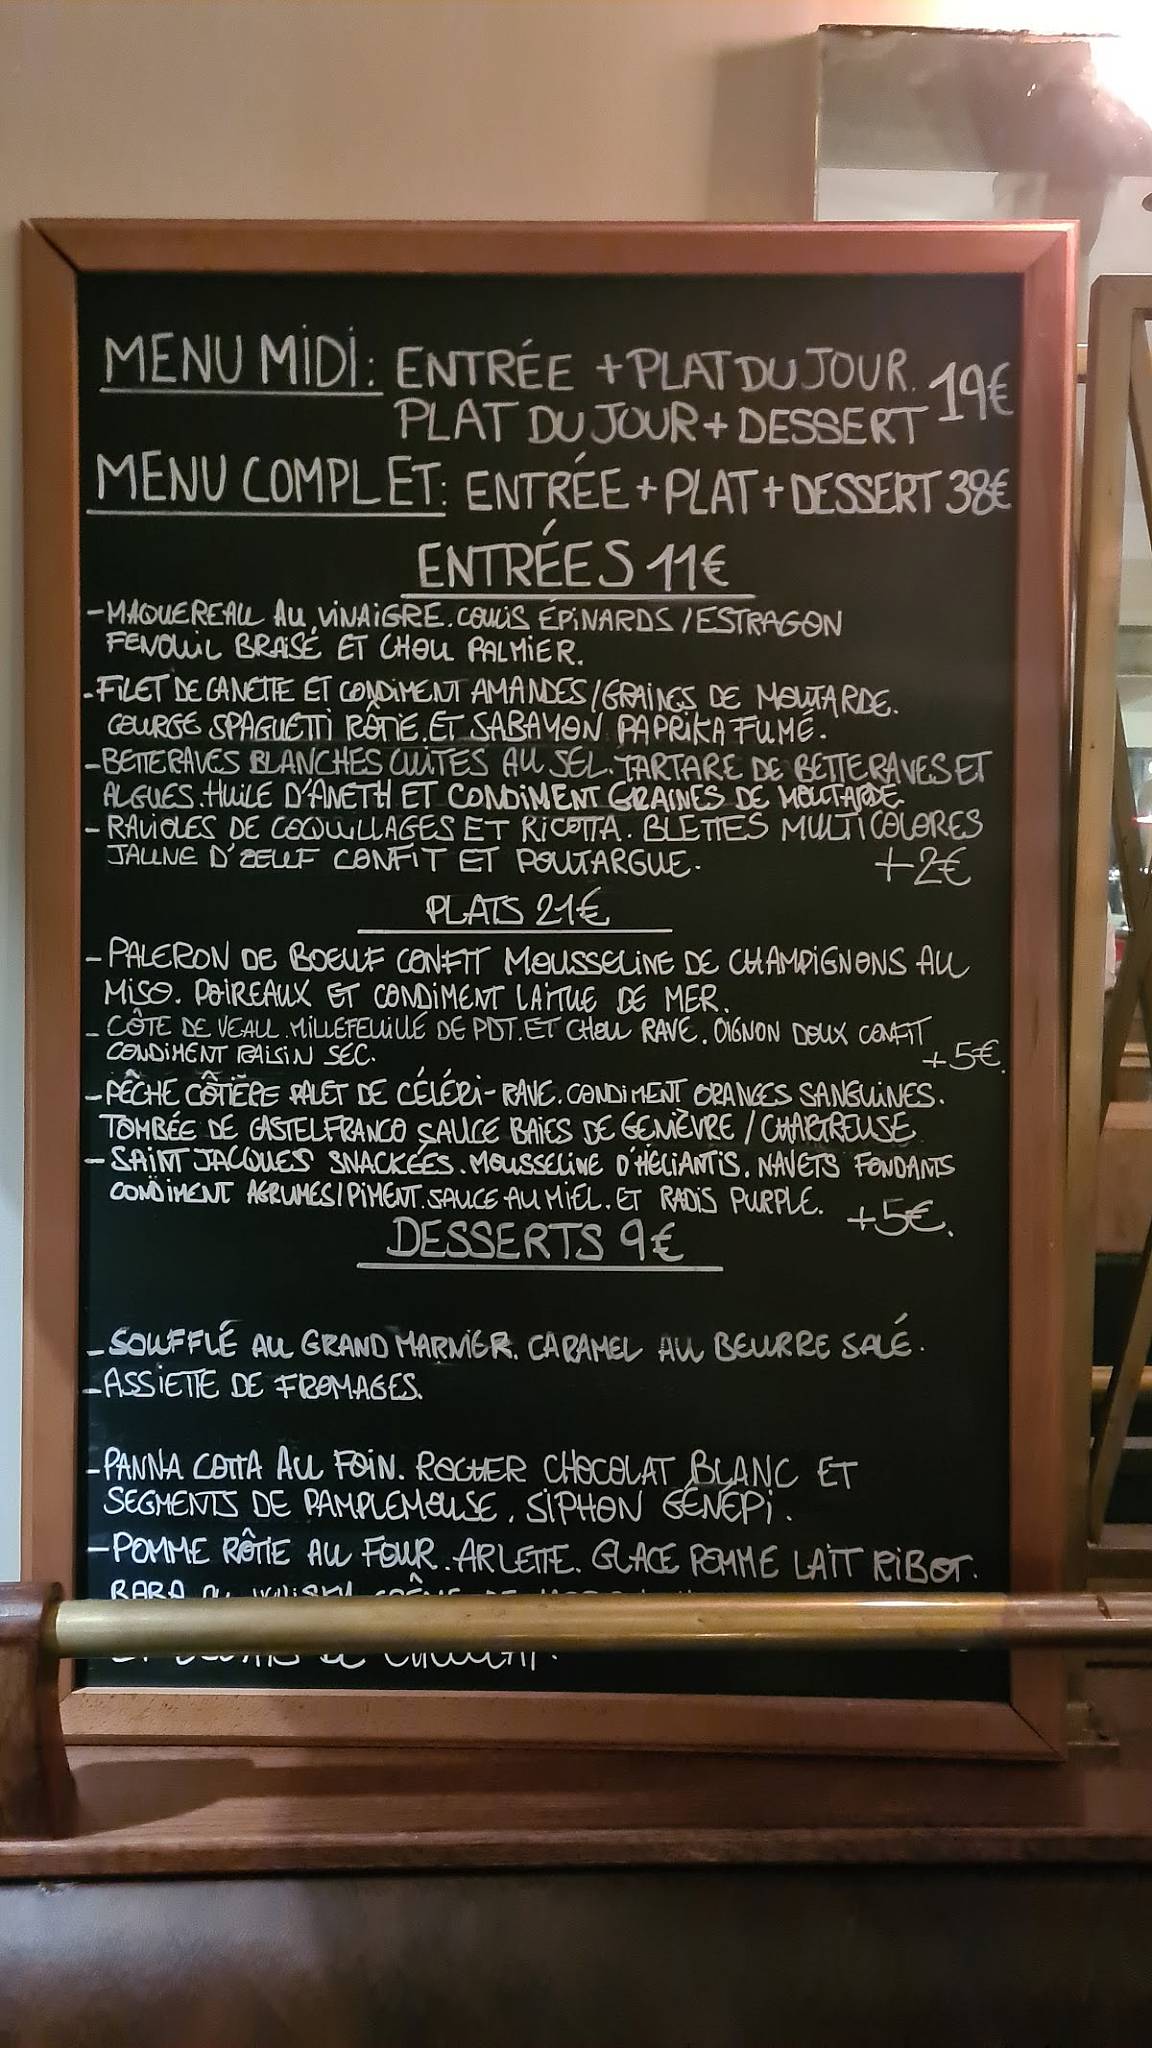 MENU MIDI: ENTRÉE + PLAT DU JOUR. 19€
PLAT DU JOUR + DESSERT
MENU COMPLET: ENTRÉE + PLAT + DESSERT 38€
ENTRÉES 11€
- MAQUEREAU AU VINAIGRE. COULIS ÉPINARDS / ESTRAGON
FENOUIL BRAISÉ ET CHOU PALMIER.
- FILET DE CANETTE ET CONDIMENT AMANDES / GRAINES DE MOUTARDE.
COURGE SPAGUETTI RÔTIE. ET SABAYON PAPRIKA FUMÉ.
- BETTERAVES BLANCHES CUITES AU SEL. TARTARE DE BETTERAVES ET
ALGUES. HUILE D'ANETH ET CONDIMENT GRAINES DE MOUTARDE.
- RAVIOLES DE COQUILLAGES ET RICOTTA. BLETTES MULTICOLORES
JAUNE D'OEUF CONFIT ET POUTARGUE. +2€
PLATS 21€
- PALERON DE BOEUF CONFIT MOUSSELINE DE CHAMPIGNONS AU
MISO. POIREAUX ET CONDIMENT LAITUE DE MER.
- CÔTE DE VEAU. MILLEFEUILLE DE PDT. ET CHOU RAVE. OIGNON DOUX CONFIT
CONDIMENT RAISIN SEC. +5€.
- PÊCHE CÔTIÈRE PALET DE CÉLÉRI-RAVE. CONDIMENT ORANGES SANGUINES.
TOMBÉE DE CASTELFRANCO SAUCE BAIES DE GENIÈVRE / CHARTREUSE
- SAINT JACQUES SNACKÉES. MOUSSELINE D'HÉLIANTIS. NAVETS FONDANTS
CONDIMENT AGRUMES / PIMENT. SAUCE AU MIEL. ET RADIS PURPLE. +5€.
DESSERTS 9€
- SOUFFLÉ AU GRAND MARNIER. CARAMEL AU BEURRE SALÉ.
- ASSIETTE DE FROMAGES.
- PANNA COTTA AU FOIN. ROCHER CHOCOLAT BLANC ET
SEGMENTS DE PAMPLEMOUSE. SIPHON GÉNÉPI.
- POMME RÔTIE AU FOUR. ARLETTE. GLACE POMME LAIT RIBOT.
BABA AU WHISKY CRÈME DE
DE CHOCOLAT.